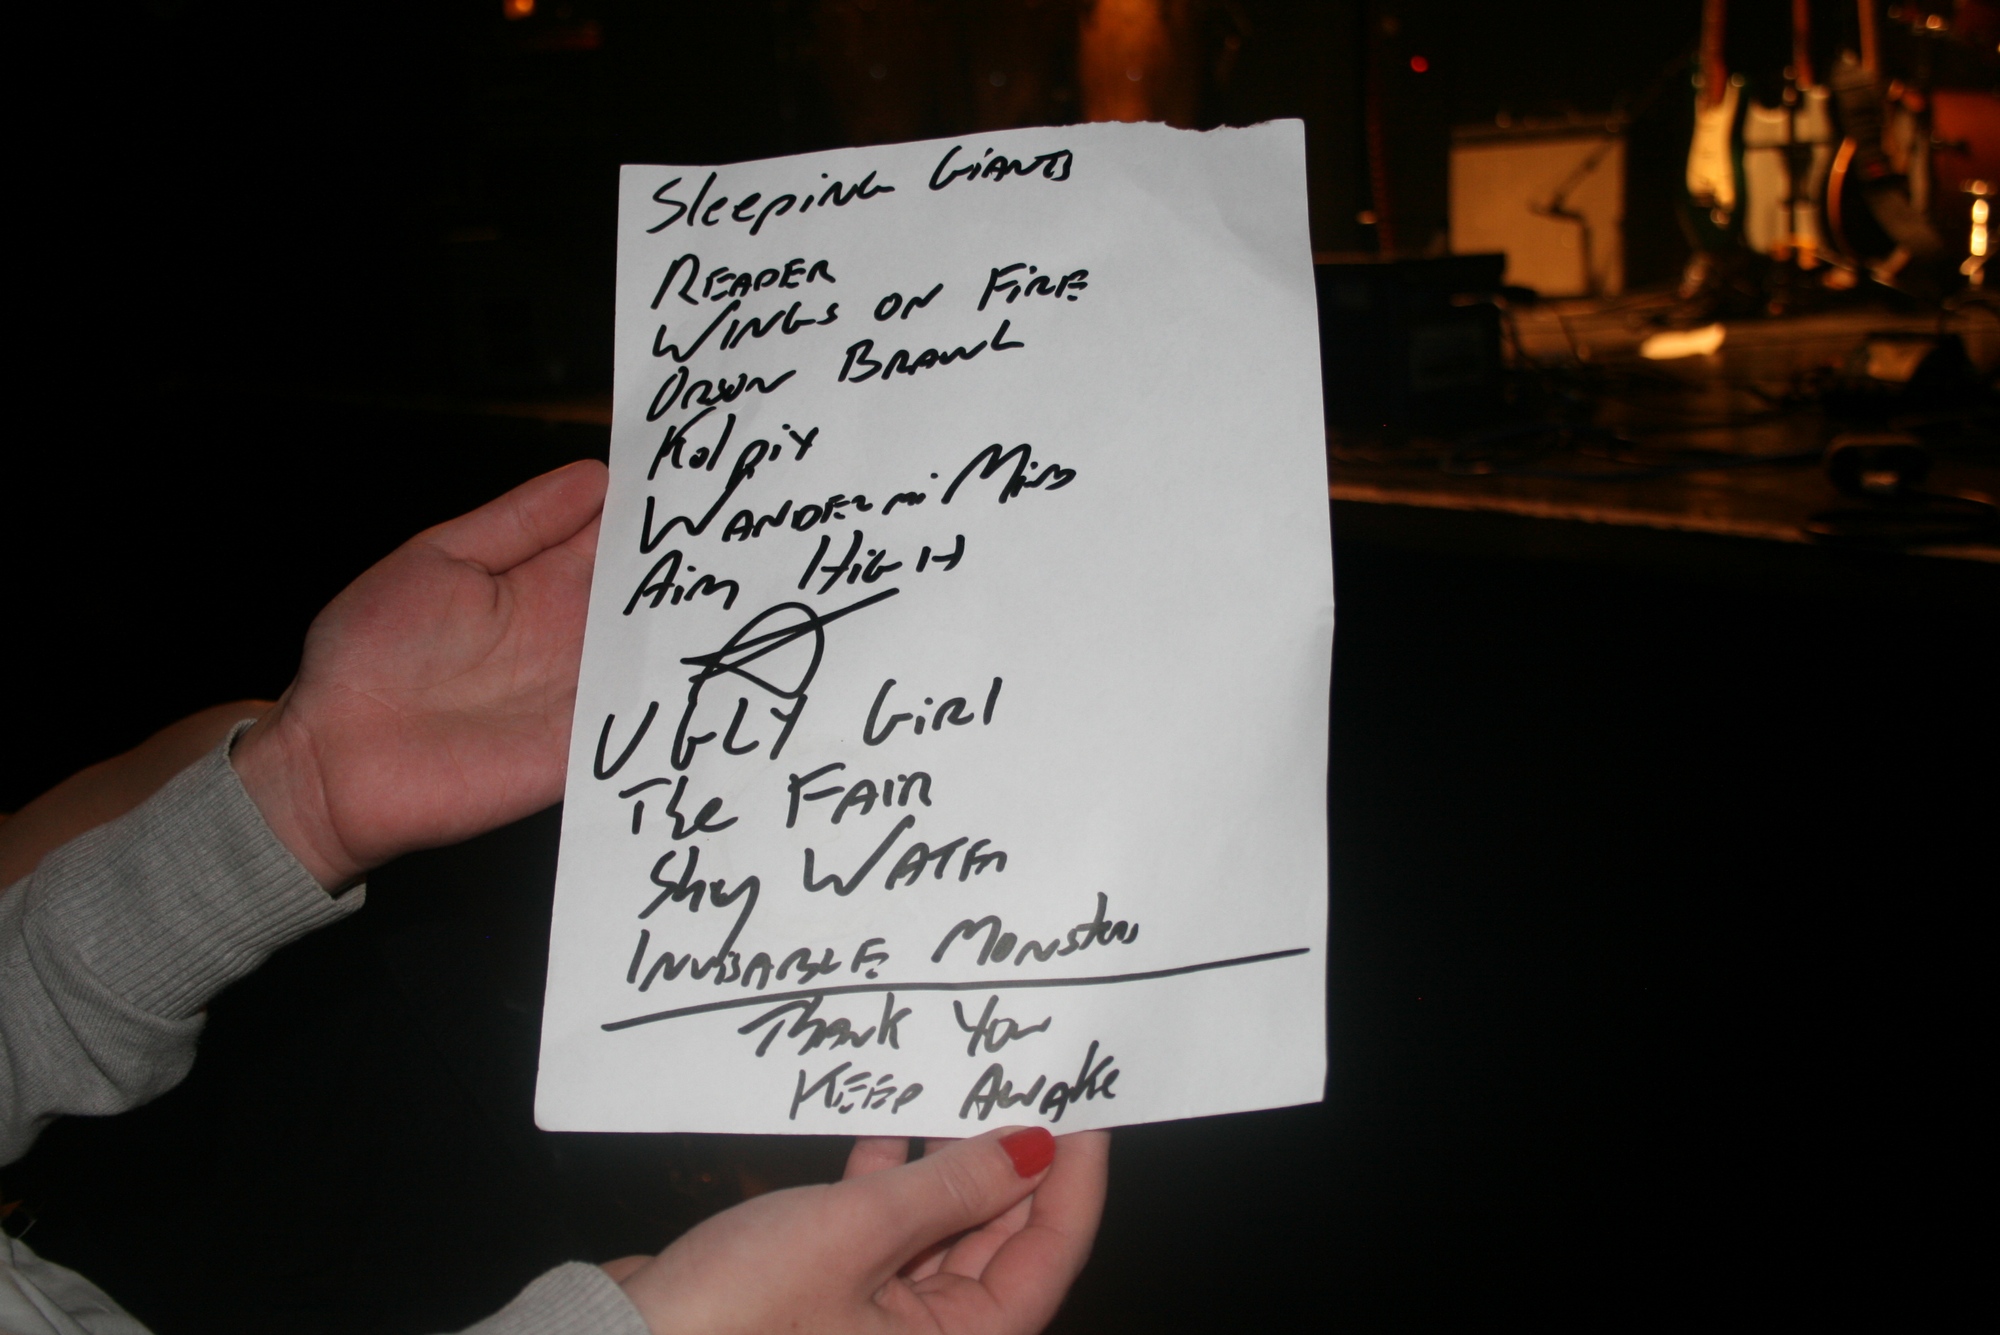 Sleeping Giants
Reader
Wings on Fire
Orson Brawl
Kolpix
Aim High
Ugly Girl
The Fair
Shy Water
Invisable Monsters
Thank You
Keep Awake